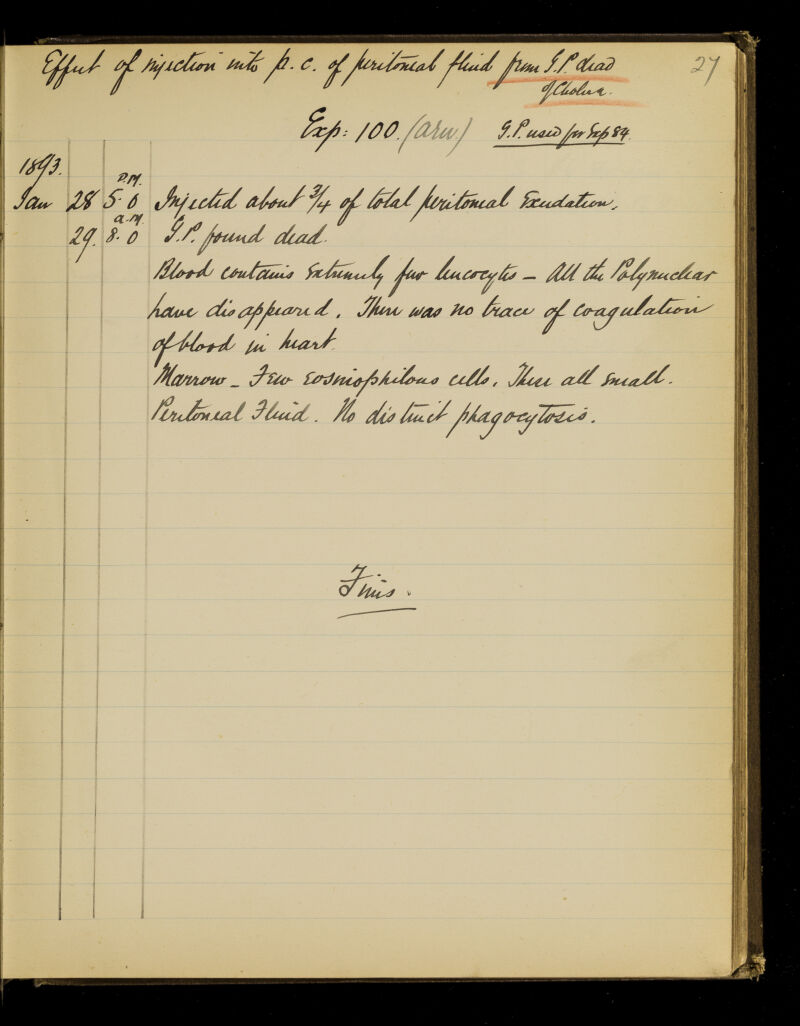 Effect of injection into p. c. of peritoneal fluid from G.P. dead
of Cholera.
27
Exp: 100. (arw) G.P. used for Exp 84.
1893.
P.M.
Jan 28 5. 0 Injected about 3/4 of total peritoneal Exudation.
a.m.
29. 8. 0 G.P. found dead.
Blood contains Extremely few leucocytes – All the Polynuclear
have disappeared. There was no trace of coagulation
of blood in heart.
Marrow – Few Eosinophilous cells. These all small.
Peritoneal Fluid. No distinct phagocytosis.
Finis.